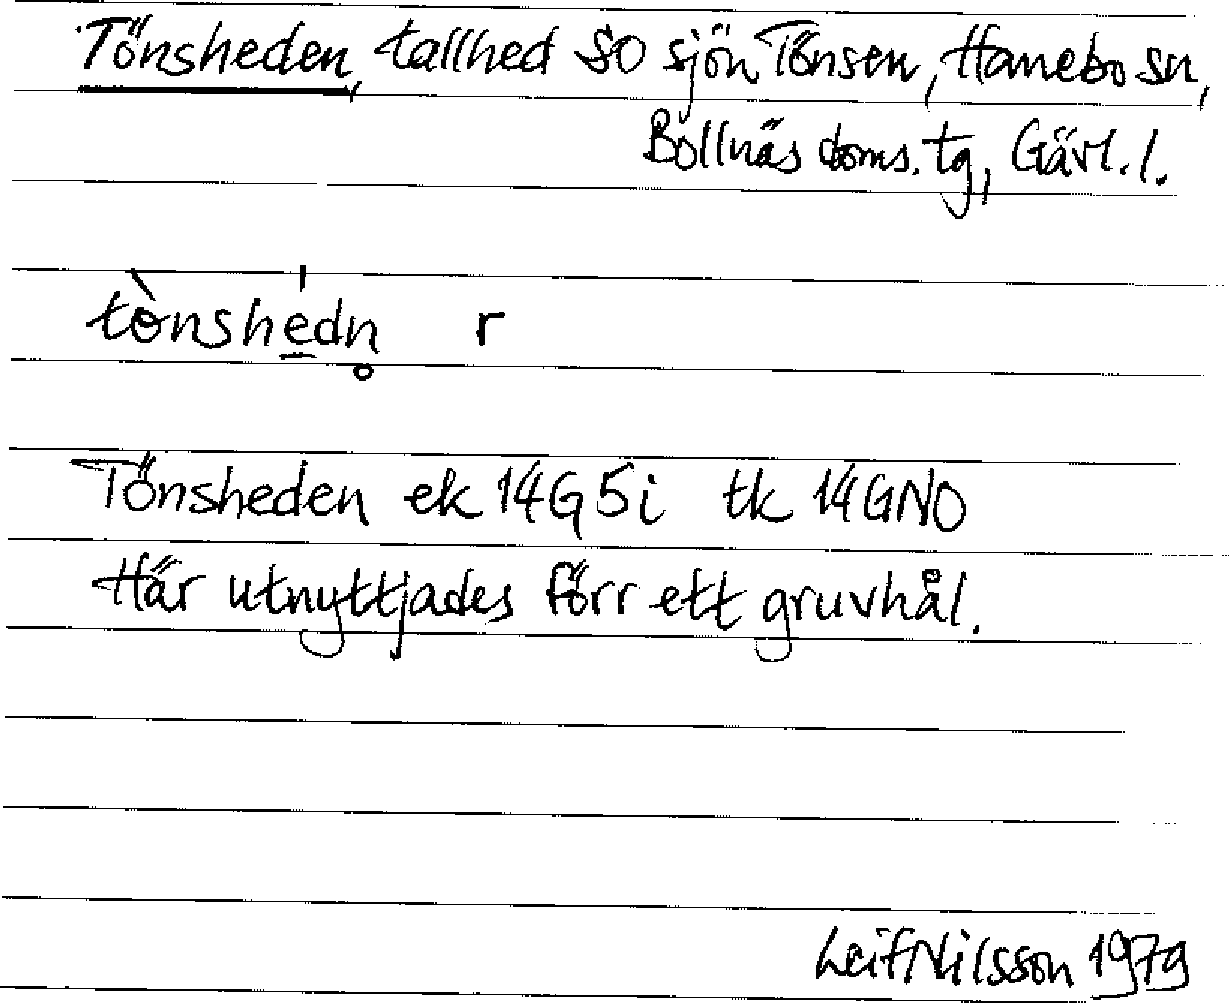 Tönsheden, tallhed SO sjön Tönsen, Hanebo sn,
Bollnäs doms. tg, Gävl. l.
tònshédn̥ r
Tönsheden ek 14G5i tk 14GNO
Här utnyttjades förr ett gruvhål.
Leif Nilsson 1979